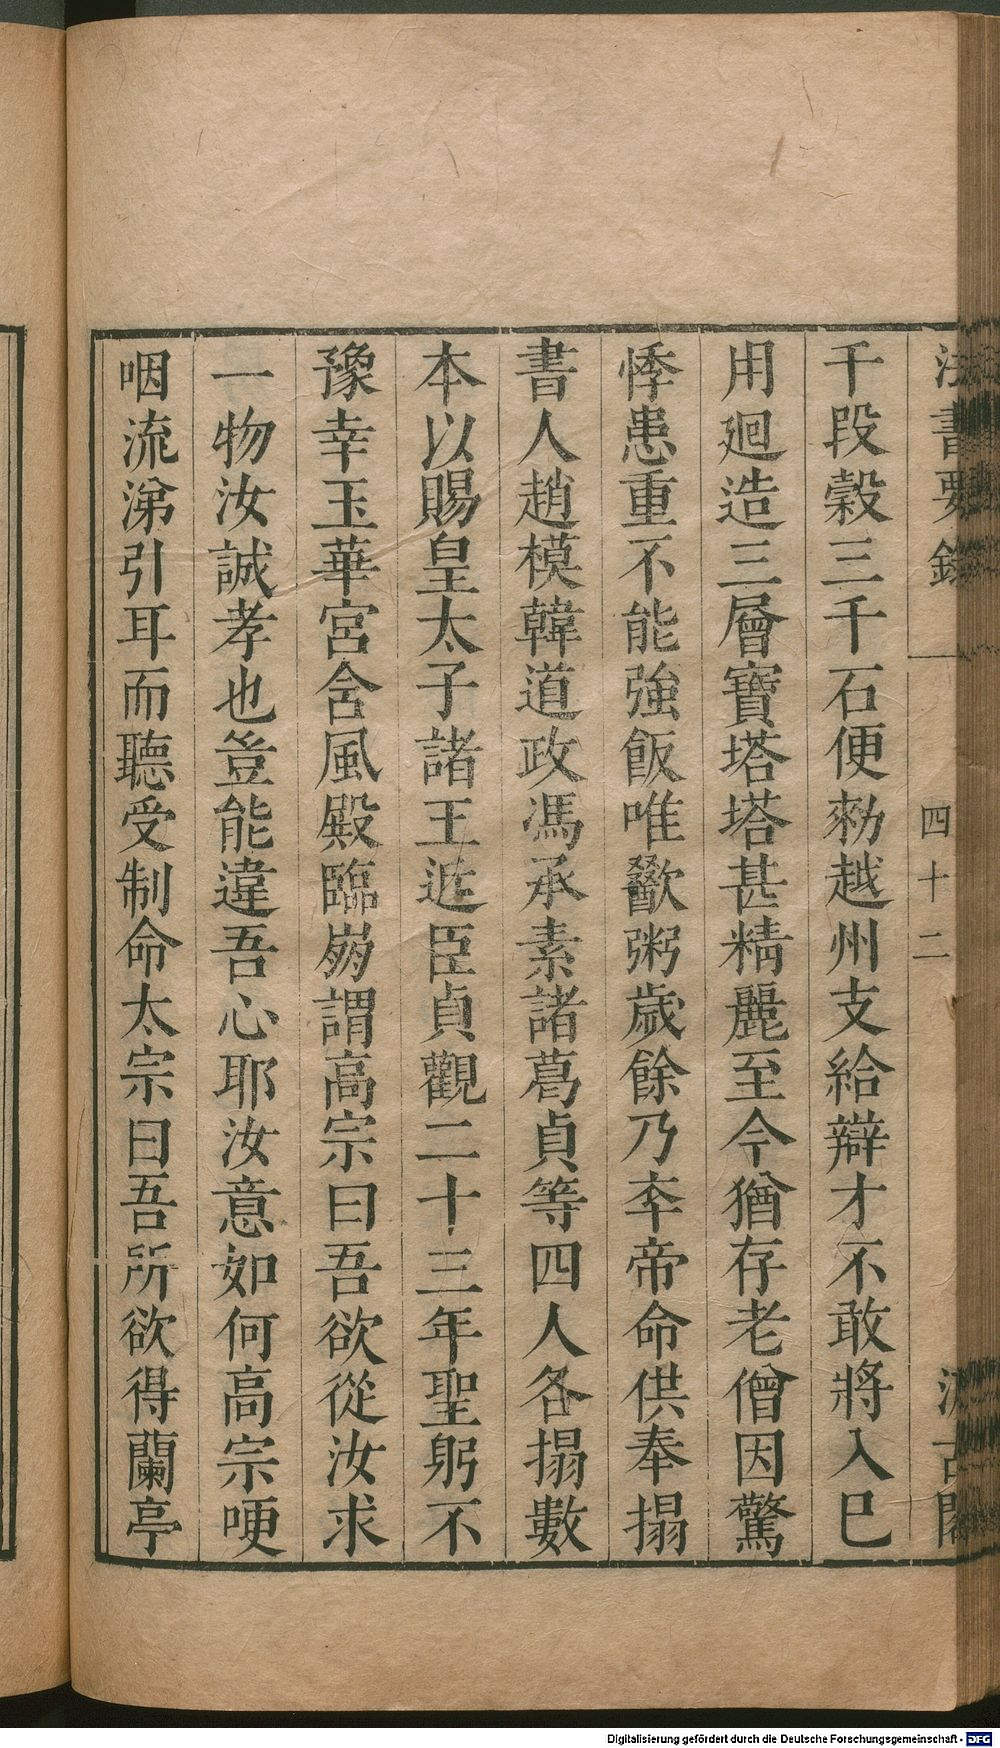 法書要錄
四十二
汲古閣
千段穀三千石便勑越州支給辯才不敢將入巳
用廻造三層寶塔塔甚精麗至今猶存老僧因驚
悸患重不能強飯唯歠粥歲餘乃卒帝命供奉搨
書人趙模韓道政馮承素諸葛貞等四人各搨數
本以賜皇太子諸王近臣貞觀二十三年聖躬不
豫幸玉華宮含風殿臨崩謂高宗曰吾欲從汝求
一物汝誠孝也豈能違吾心耶汝意如何高宗哽
咽流涕引耳而聽受制命太宗曰吾所欲得蘭亭
Digitalisierung gefördert durch die Deutsche Forschungsgemeinschaft - DFG